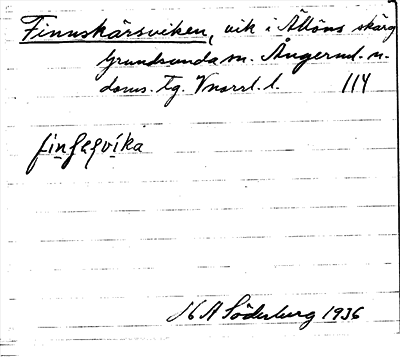 Finnskärsviken, vik i Ållöns skärg
Grundsunda sn. Ångerml. n.
doms. tg. Vnorrl. l. 114
finʃeʃvika
K A Söderberg 1936